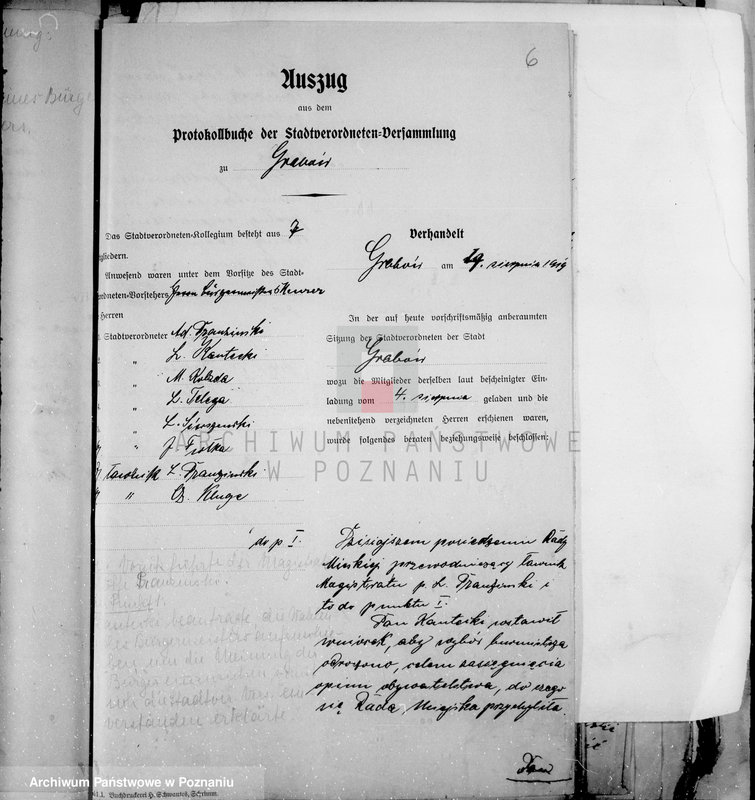 6
Auszug
aus dem
Protokollbuche der Stadtverordneten-Versammlung
zu Grabów
Das Stadtverordneten-Kollegium besteht aus 7
gliedern.
Anwesend waren unter dem Vorsitze des Stadt-
rdneten-Vorstehers Herrn Bürgermeister
Herren
Stadtverordneter Ad. Franzinski
" L. Kantecki
" M. Kolada
" L. Telega
" L.
" J. Fiolka
Ławnik L. Franzinski
" O. Kluge
Verhandelt
Grabów am 19. sierpnia 1919
In der auf heute vorschriftsmäßig anberaumten
Sitzung der Stadtverordneten der Stadt
Grabów
wozu die Mitglieder derselben laut bescheinigter Ein-
ladung vom 4. sierpnia geladen und die
nebenstehend verzeichneten Herren erschienen waren,
wurde folgendes beraten beziehungsweise beschlossen:
do p I.
Dzisiejszem posiedzeniu Rady
Miejskiej przewodniczący ławnik
Magistratu p. L. Franzinski i
to do punktu I.
Pan Kantecki postawił
wniosek, aby wybór burmistrza
odroczono, celem zasięgnięcia
opinii obywatelstwa, do czego
się Rada Miejska przychyliła.
Pan
Punkt 1.
beantragte die Wahl
des Bürgermeisters
ben um die Meinung der
Bürger
die Stadtver. Vers. ein
verstanden erklärte.
ARCHIWUM PAŃSTWOWE
W POZNANIU
Archiwum Państwowe w Poznaniu
Buchdruckerei H. Schwantes, Schrimm.